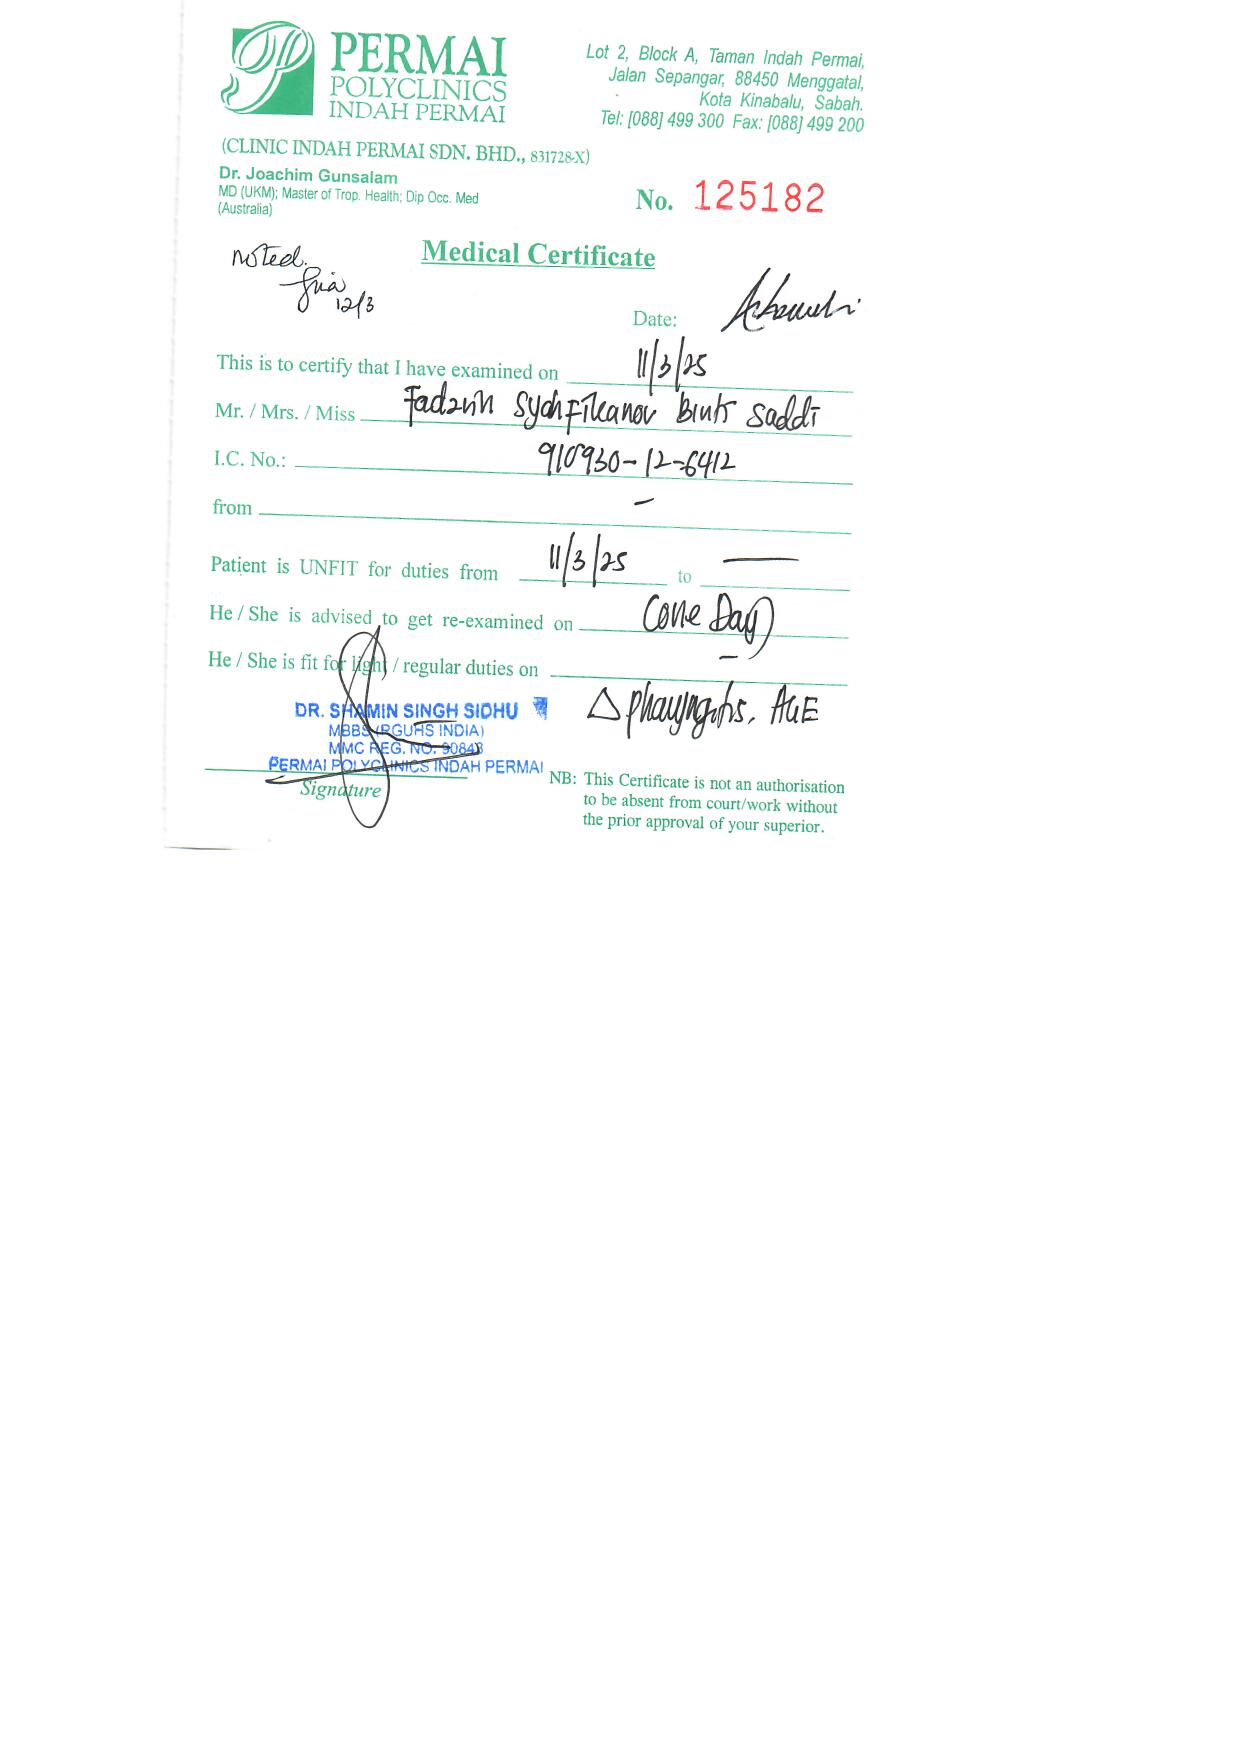 PERMAI
POLYCLINICS
INDAH PERMAI
Lot 2, Block A, Taman Indah Permai,
Jalan Sepangar, 88450 Menggatal,
Kota Kinabalu, Sabah.
Tel: [088] 499 300 Fax: [088] 499 200
(CLINIC INDAH PERMAI SDN. BHD., 831728-X)
Dr. Joachim Gunsalam
MD (UKM); Master of Trop. Health; Dip Occ. Med
(Australia)
No. 125182
Medical Certificate
noted.
12/3
Date:
This is to certify that I have examined on 11/3/25
Mr. / Mrs. / Miss Saddi
I.C. No.: 910930-12-6412
from –
Patient is UNFIT for duties from 11/3/25 to —
He / She is advised to get re-examined on (one Day)
He / She is fit for light / regular duties on –
DR. SHAMIN SINGH SIDHU
MBBS (RGUHS INDIA)
MMC REG. NO: 90843
PERMAI POLYCLINICS INDAH PERMAI
Signature
Δ pharyngitis, AGE
NB: This Certificate is not an authorisation
to be absent from court/work without
the prior approval of your superior.